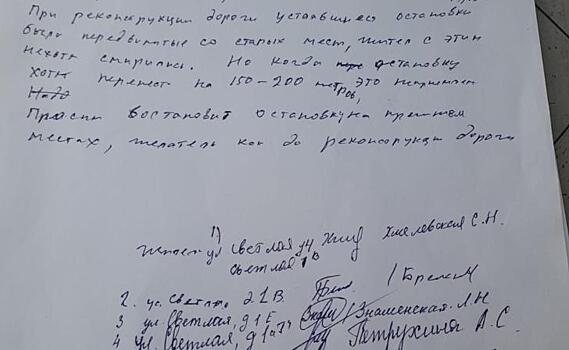 При реконструкции дороги устаявшиеся остановки
были передвинуты со старых мест, жители с этим
нехотя смирились. Но когда остановку
хотят перенести на 150-200 метров, это неприемлем
Надо
Просим востановит остановку на прежнем
местах, желатель как до реконструкции дороги
1)
ул Светлая Хмелевская С.Н.
Светлая 1 В
2. ул. Светлая д 1 В.
3 ул. Светлая, д 1 Г / Знаменская Л Н
4 ул. Светлая, д 1 Петрухина А.С.